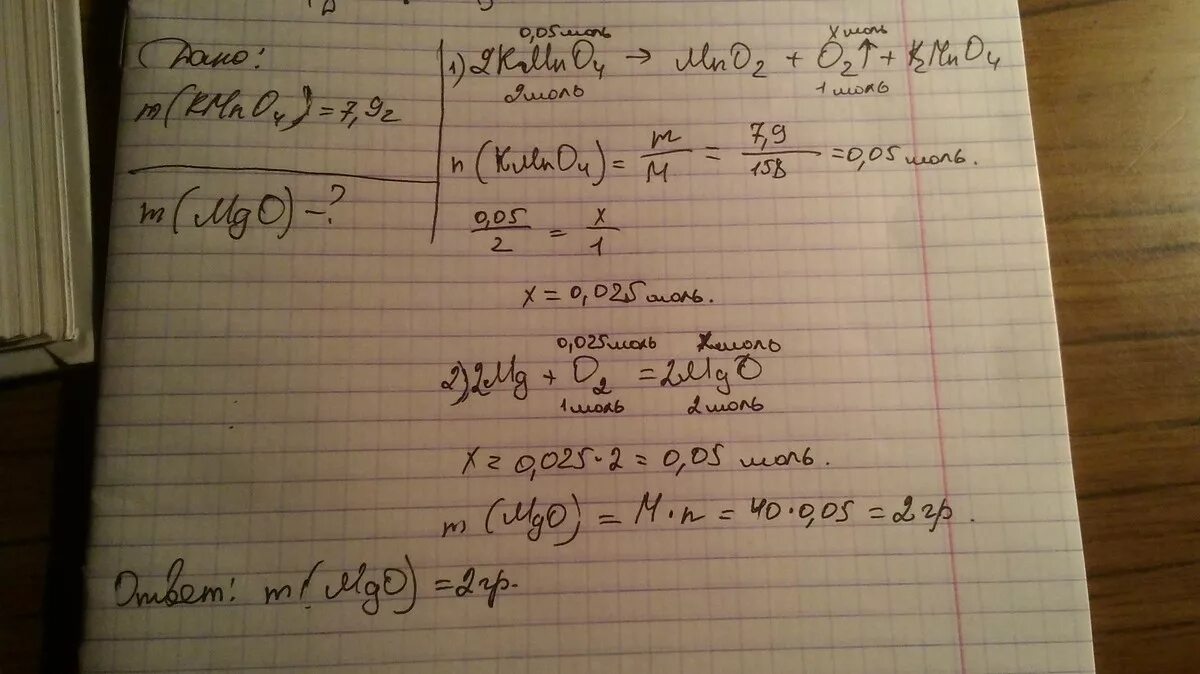 Дано:
m(KMnO4)=7,9г
m(MgO)-?
0,05моль x моль
1) 2KMnO4 → MnO2 + O2↑ + K2MnO4
2моль 1моль
n(KMnO4) = m/M = 7,9/158 = 0,05 моль.
0,05/2 = x/1
x = 0,025моль.
0,025моль xмоль
2) 2Mg + O2 = 2MgO
1моль 2моль
x = 0,025·2 = 0,05 моль.
m (MgO) = M·n = 40·0,05 = 2гр.
Ответ: m(MgO) = 2гр.